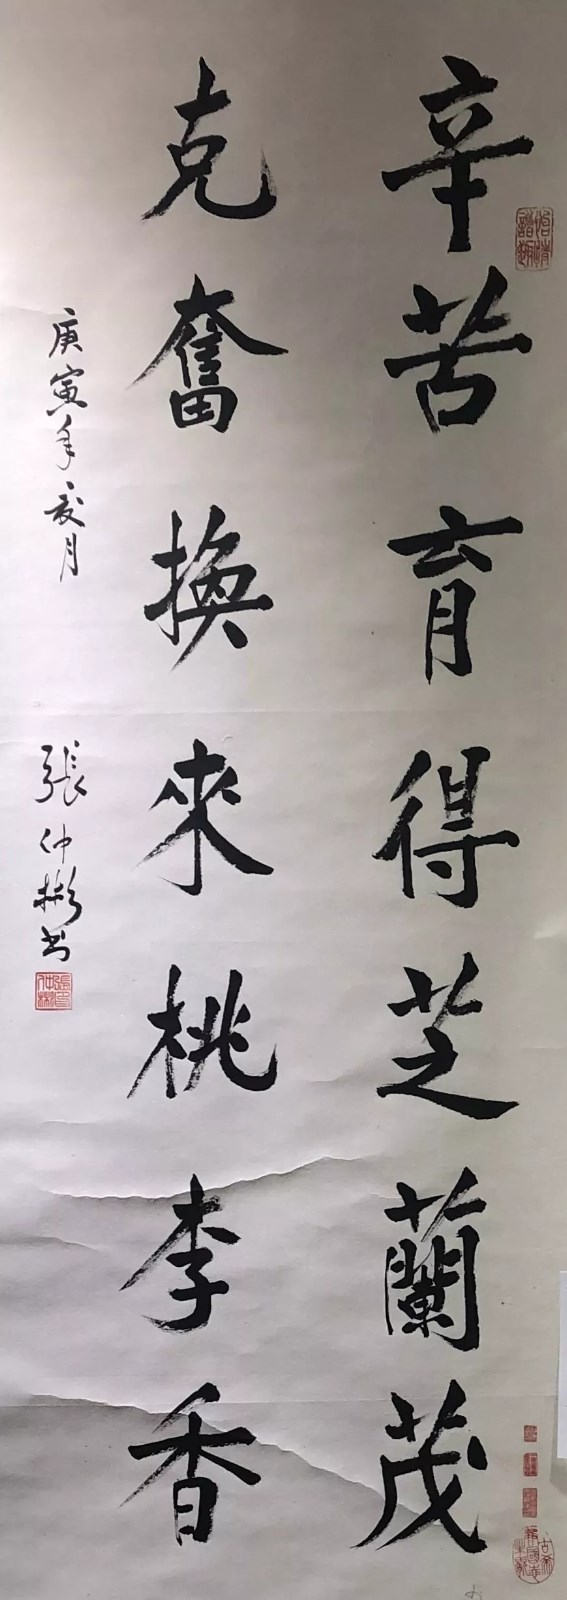 辛苦育得芝蘭茂
克奮換來桃李香
庚寅年夏月
張仲彬书